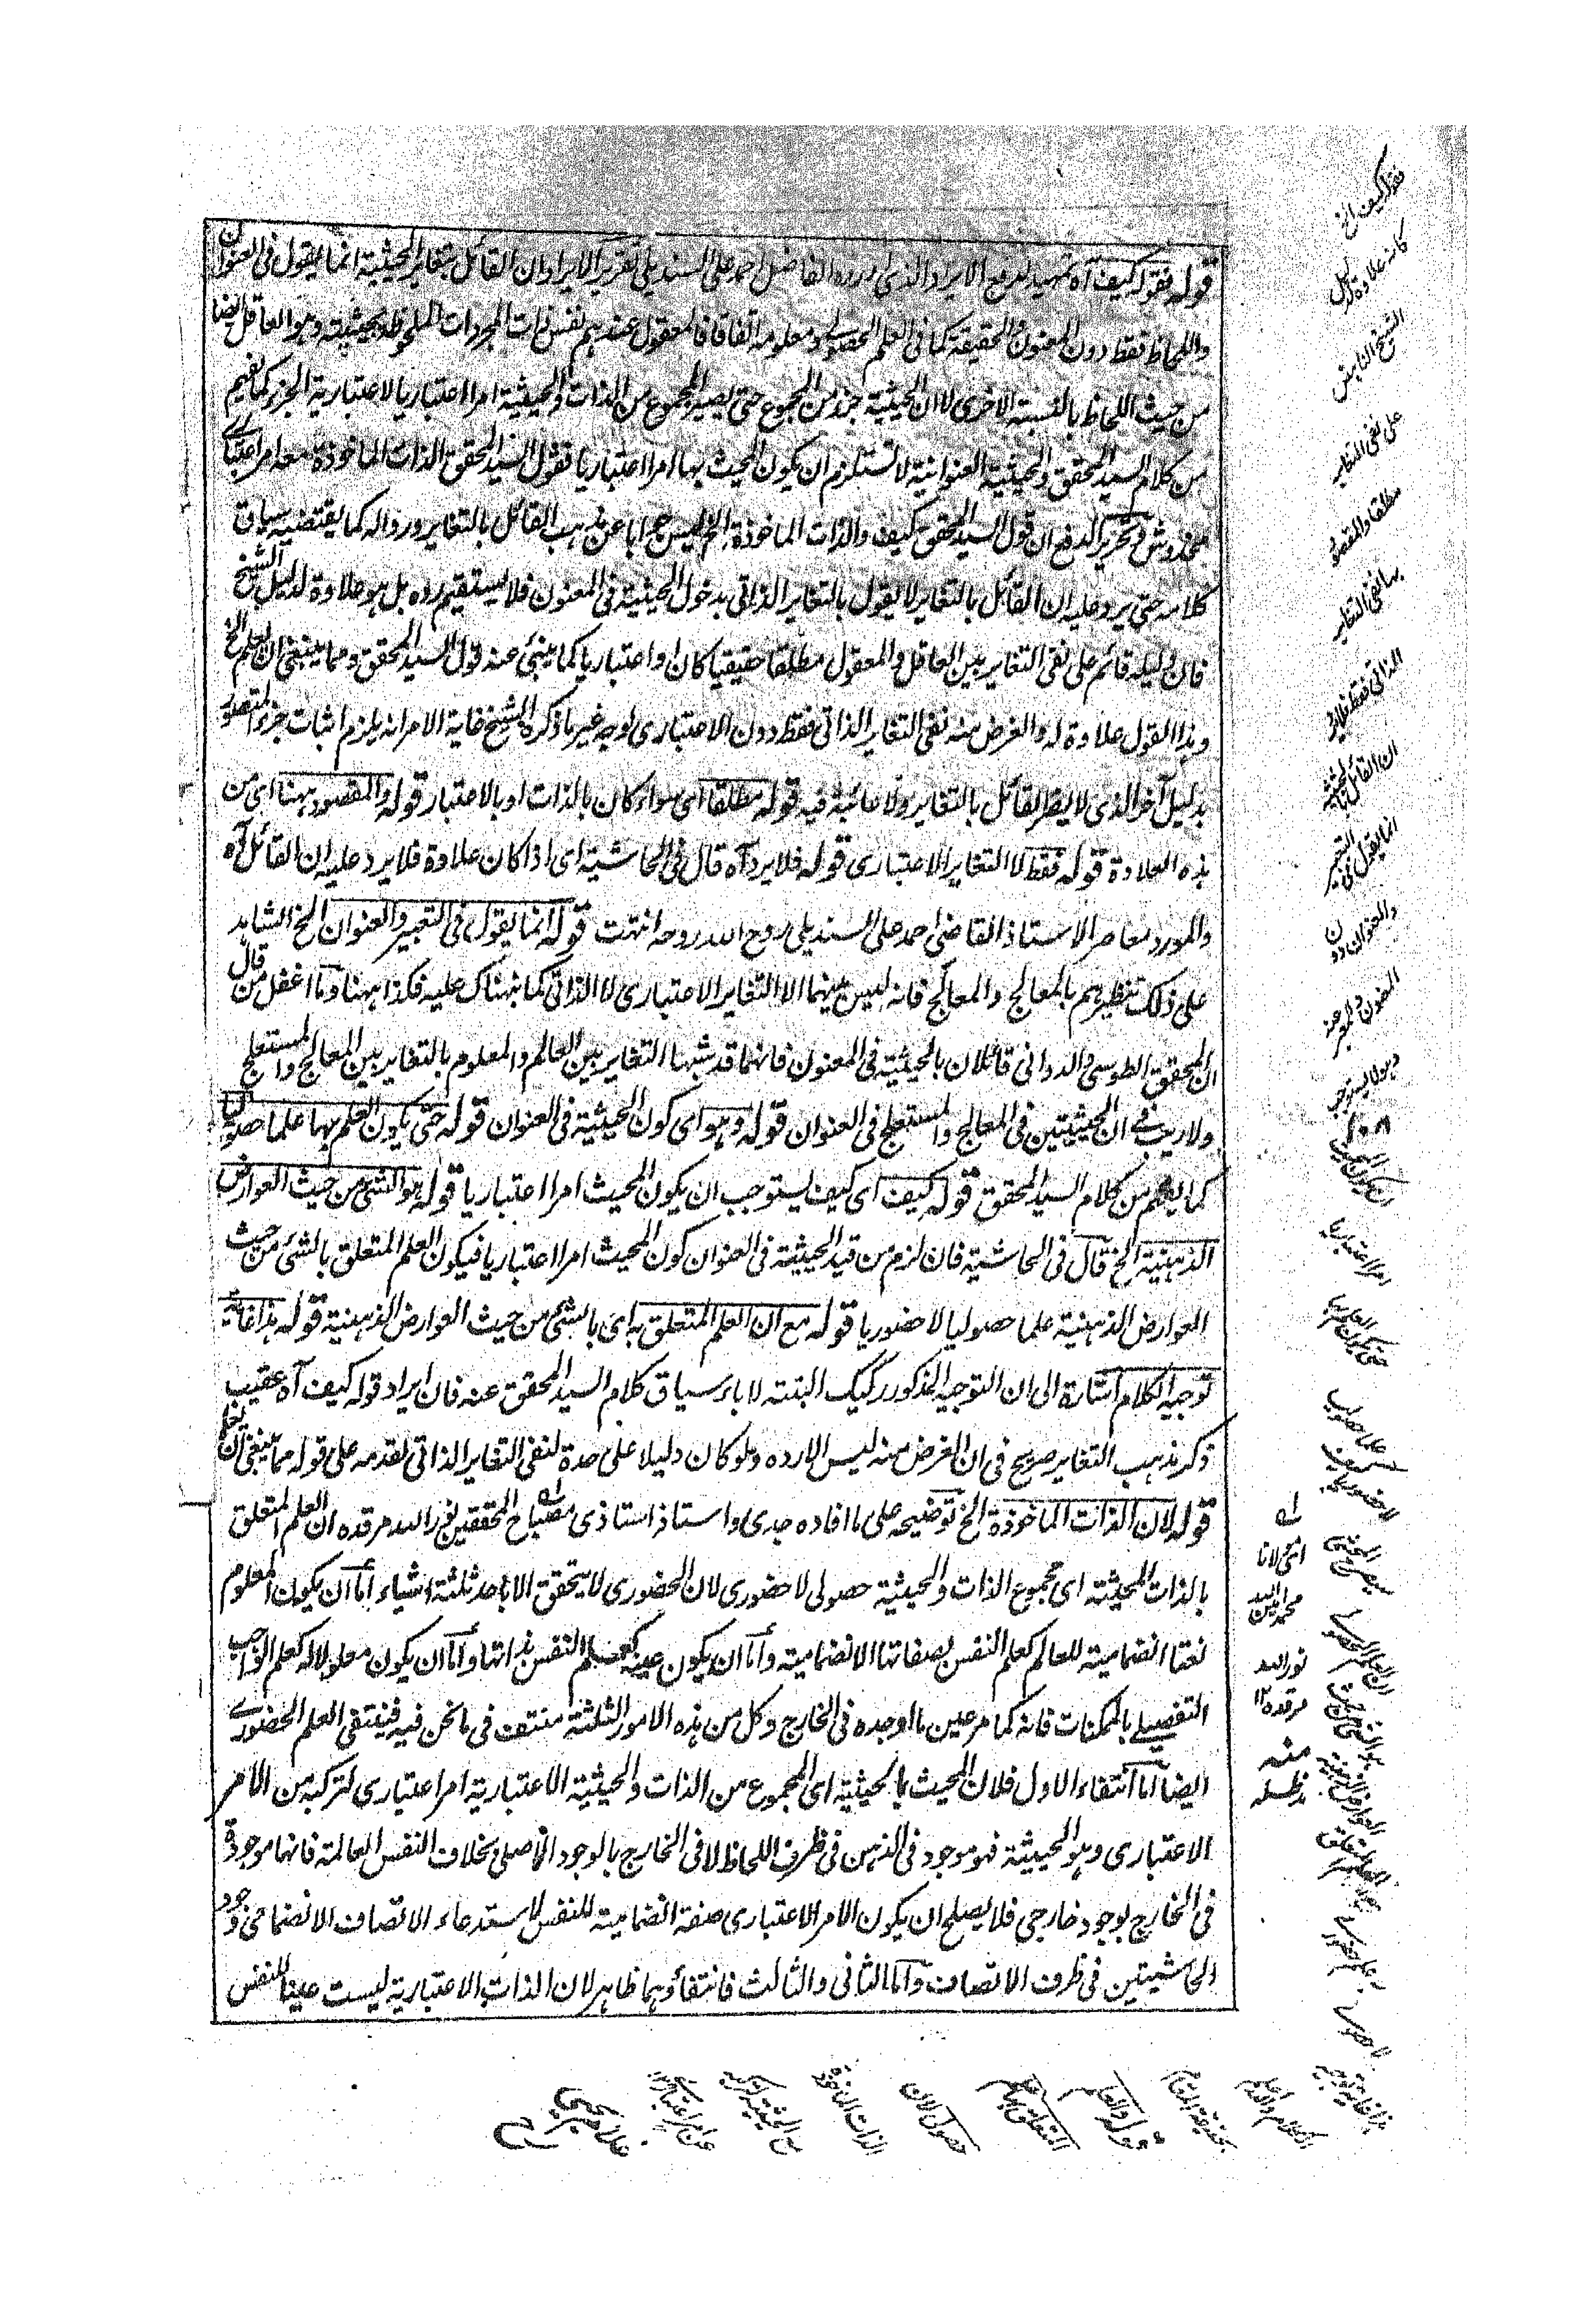 قوله فقوله كيف آه تمهيد لدفع الايراد الذى اورده الفاضل احمد على السنديلى تقرير الايراد ان القائل بتغاير الحيثية انما يقول فى العنوان
واللحاظ فقط دون المعنون والحقيقة كما فى العلم الحصولى ومعلومه اتفاقا فالمعقول عندهم نفس ذات المجردات الملحوظة بحيثية وهو العاقل ايضا
من حيث اللحاظ بالنسبة الاخرى لا ان الحيثية جزء من المجموع حتى يصير المجموع من الذات والحيثية امرا اعتباريا لاعتبارية الجزء كما يفهم
من كلام السيد المحقق والحيثية العنوانية لا تستلزم ان يكون المحيث بها امرا اعتباريا فقول السيد المحقق الذات الماخوذة معه امر اعتبارى
مخدوش وتحرير الدفع ان قول السيد المحقق كيف والذات الماخوذة الخ ليس جوابا عن مذهب القائل بالتغاير وردا له كما يقتضيه سياق
كلامه حتى يرد عليه ان القائل بالتغاير لا يقول بالتغاير الذاتى بدخول الحيثية فى المعنون فلا يستقيم رده بل هو علاوة لدليل الشيخ
فان دليله قائم على نفى التغاير بين العاقل والمعقول مطلقا حقيقيا كان او اعتباريا كما ينبئ عنه قول السيد المحقق ومما ينبغى ان يعلم الخ
وهذا القول علاوة له والغرض منه نفى التغاير الذاتى فقط دون الاعتبارى لوجه غير ما ذكره الشيخ غاية الامر انه يلزم اثبات جزء المقصود
بدليل آخر الذى لا يضر القائل بالتغاير ولا عائبة فيه قوله مطلقا اى سواء كان بالذات او بالاعتبار قوله والمقصود ههنا اى من
هذه العلاوة قوله فقط لا التغاير الاعتبارى قوله فلا يرد آه قال فى الحاشية اى اذا كان علاوة فلا يرد عليه ان القائل آه
والمورد معاصر الاستاذ القاضى احمد على السنديلى روح الله روحه انتهت قوله انما يقول فى التعبير والعنوان الخ الشاهد
على ذلك تنظيرهم بالمعالج والمعالج فانه ليس بينهما الا التغاير الاعتبارى لا الذاتى كما نبهناك عليه فكذا ههنا وما اغفل من قال
ان المحقق الطوسى والدوانى قائلان بالحيثية فى المعنون فانهما قد شبها التغاير بين العالم والمعلوم بالتغاير بين المعالج والمستعلج
ولا ريب فى ان الحيثيتين فى المعالج والمستعلج فى العنوان قوله وهو اى كون الحيثية فى العنوان قوله حتى يكون العلم بهما علما حصوليا
كما يفهم من كلام السيد المحقق قوله كيف اى كيف يستوجب ان يكون المحيث امرا اعتباريا قوله هو الشئ من حيث العوارض
الذهنية الخ قال فى الحاشية فان لزم من قيد الحيثية فى العنوان كون المحيث امرا اعتباريا فيكون العلم المتعلق بالشئ من حيث
العوارض الذهنية علما حصوليا لا حضوريا قوله مع ان العلم المتعلق به اى بالشئ من حيث العوارض الذهنية قوله هذا غاية
توجيه الكلام اشارة الى ان التوجيه المذكور ركيك البتة لاباء سياق كلام السيد المحقق عنه فان ايراد قوله كيف آه عقيب
ذكر مذهب التغاير صريح فى ان الغرض منه ليس الا رده ولو كان دليلا على حدة لنفى التغاير الذاتى لقدمه على قوله مما ينبغى ان يعلم
قوله لان الذات الماخوذة الخ توضيحه على ما افاده جدى واستاذ استاذى مصباح المحققين نور الله مرقده ان العلم المتعلق
بالذات المحيثة اى مجموع الذات والحيثية حصولى لا حضورى لان الحضورى لا يتحقق الا باحد ثلثة اشياء اما ان يكون المعلوم
نعتا انضمامية للعالم كعلم النفس بصفاتها الانضمامية واما ان يكون عينه كعلم النفس بذاتها واما ان يكون معلولا له كعلم الواجب
التفصيلى بالممكنات فانه كما مر عين ما اوجده فى الخارج وكل من هذه الامور الثلثة منتف فى ما نحن فيه فينتفى العلم الحضورى
ايضا اما انتفاء الاول فلان المحيث بالحيثية اى المجموع من الذات والحيثية الاعتبارية امر اعتبارى لتركبه من الامر
الاعتبارى وهو الحيثية فهو موجود فى الذهن فى ظرف اللحاظ لا فى الخارج بالوجود الاصلى بخلاف النفس العالمة فانها موجودة
فى الخارج بوجود خارجى فلا يصلح ان يكون الامر الاعتبارى صفة انضمامية للنفس لاستدعاء الاتصاف الانضمامى وجود
الحاشيتين فى ظرف الاتصاف واما الثانى والثالث فانتفاؤهما ظاهر لان الذات الاعتبارية ليست عينا للنفس
فقوله كيف الخ
كانه علاوة لدليل
الشيخ الناهض
على نفى التغاير
مطلقا والمقصود
ههنا نفى التغاير
الذاتى فقط فلا يرد
ان القائل بالحيثية
انما يقول فى التعبير
والعنوان دون
المعنون والمعبر عنه
وهو لا يستوجب
ان يكون المحيث
امرا اعتباريا
حتى يكون العلم
علما حصوليا
اى مولانا
محمد امين الله
نور الله
مرقده ١٢
منه
مد ظله
هذا غاية توجيه
الكلام والله اعلم
بحقيقة المقام
قوله والعلم
المتعلق بها علم
حصولى لان
الذات الماخوذة
مع الحيثية مركبة